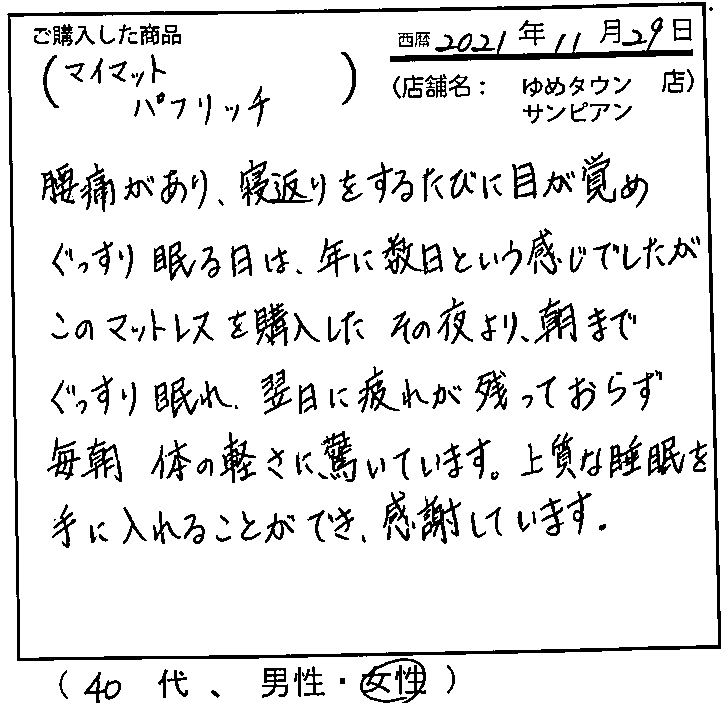 ご購入した商品
西暦 2021 年 11 月 29 日
(マイマット
パフリッチ)
(店舗名: ゆめタウン 店)
サンピアン
腰痛があり、寝返りをするたびに目が覚め
ぐっすり眠る日は、年に数日という感じでしたが
このマットレスを購入した その夜より、朝まで
ぐっすり眠れ、翌日に疲れが残っておらず
毎朝 体の軽さに驚いています。上質な睡眠を
手に入れることができ、感謝しています。
( 40 代 、 男性・女性 )